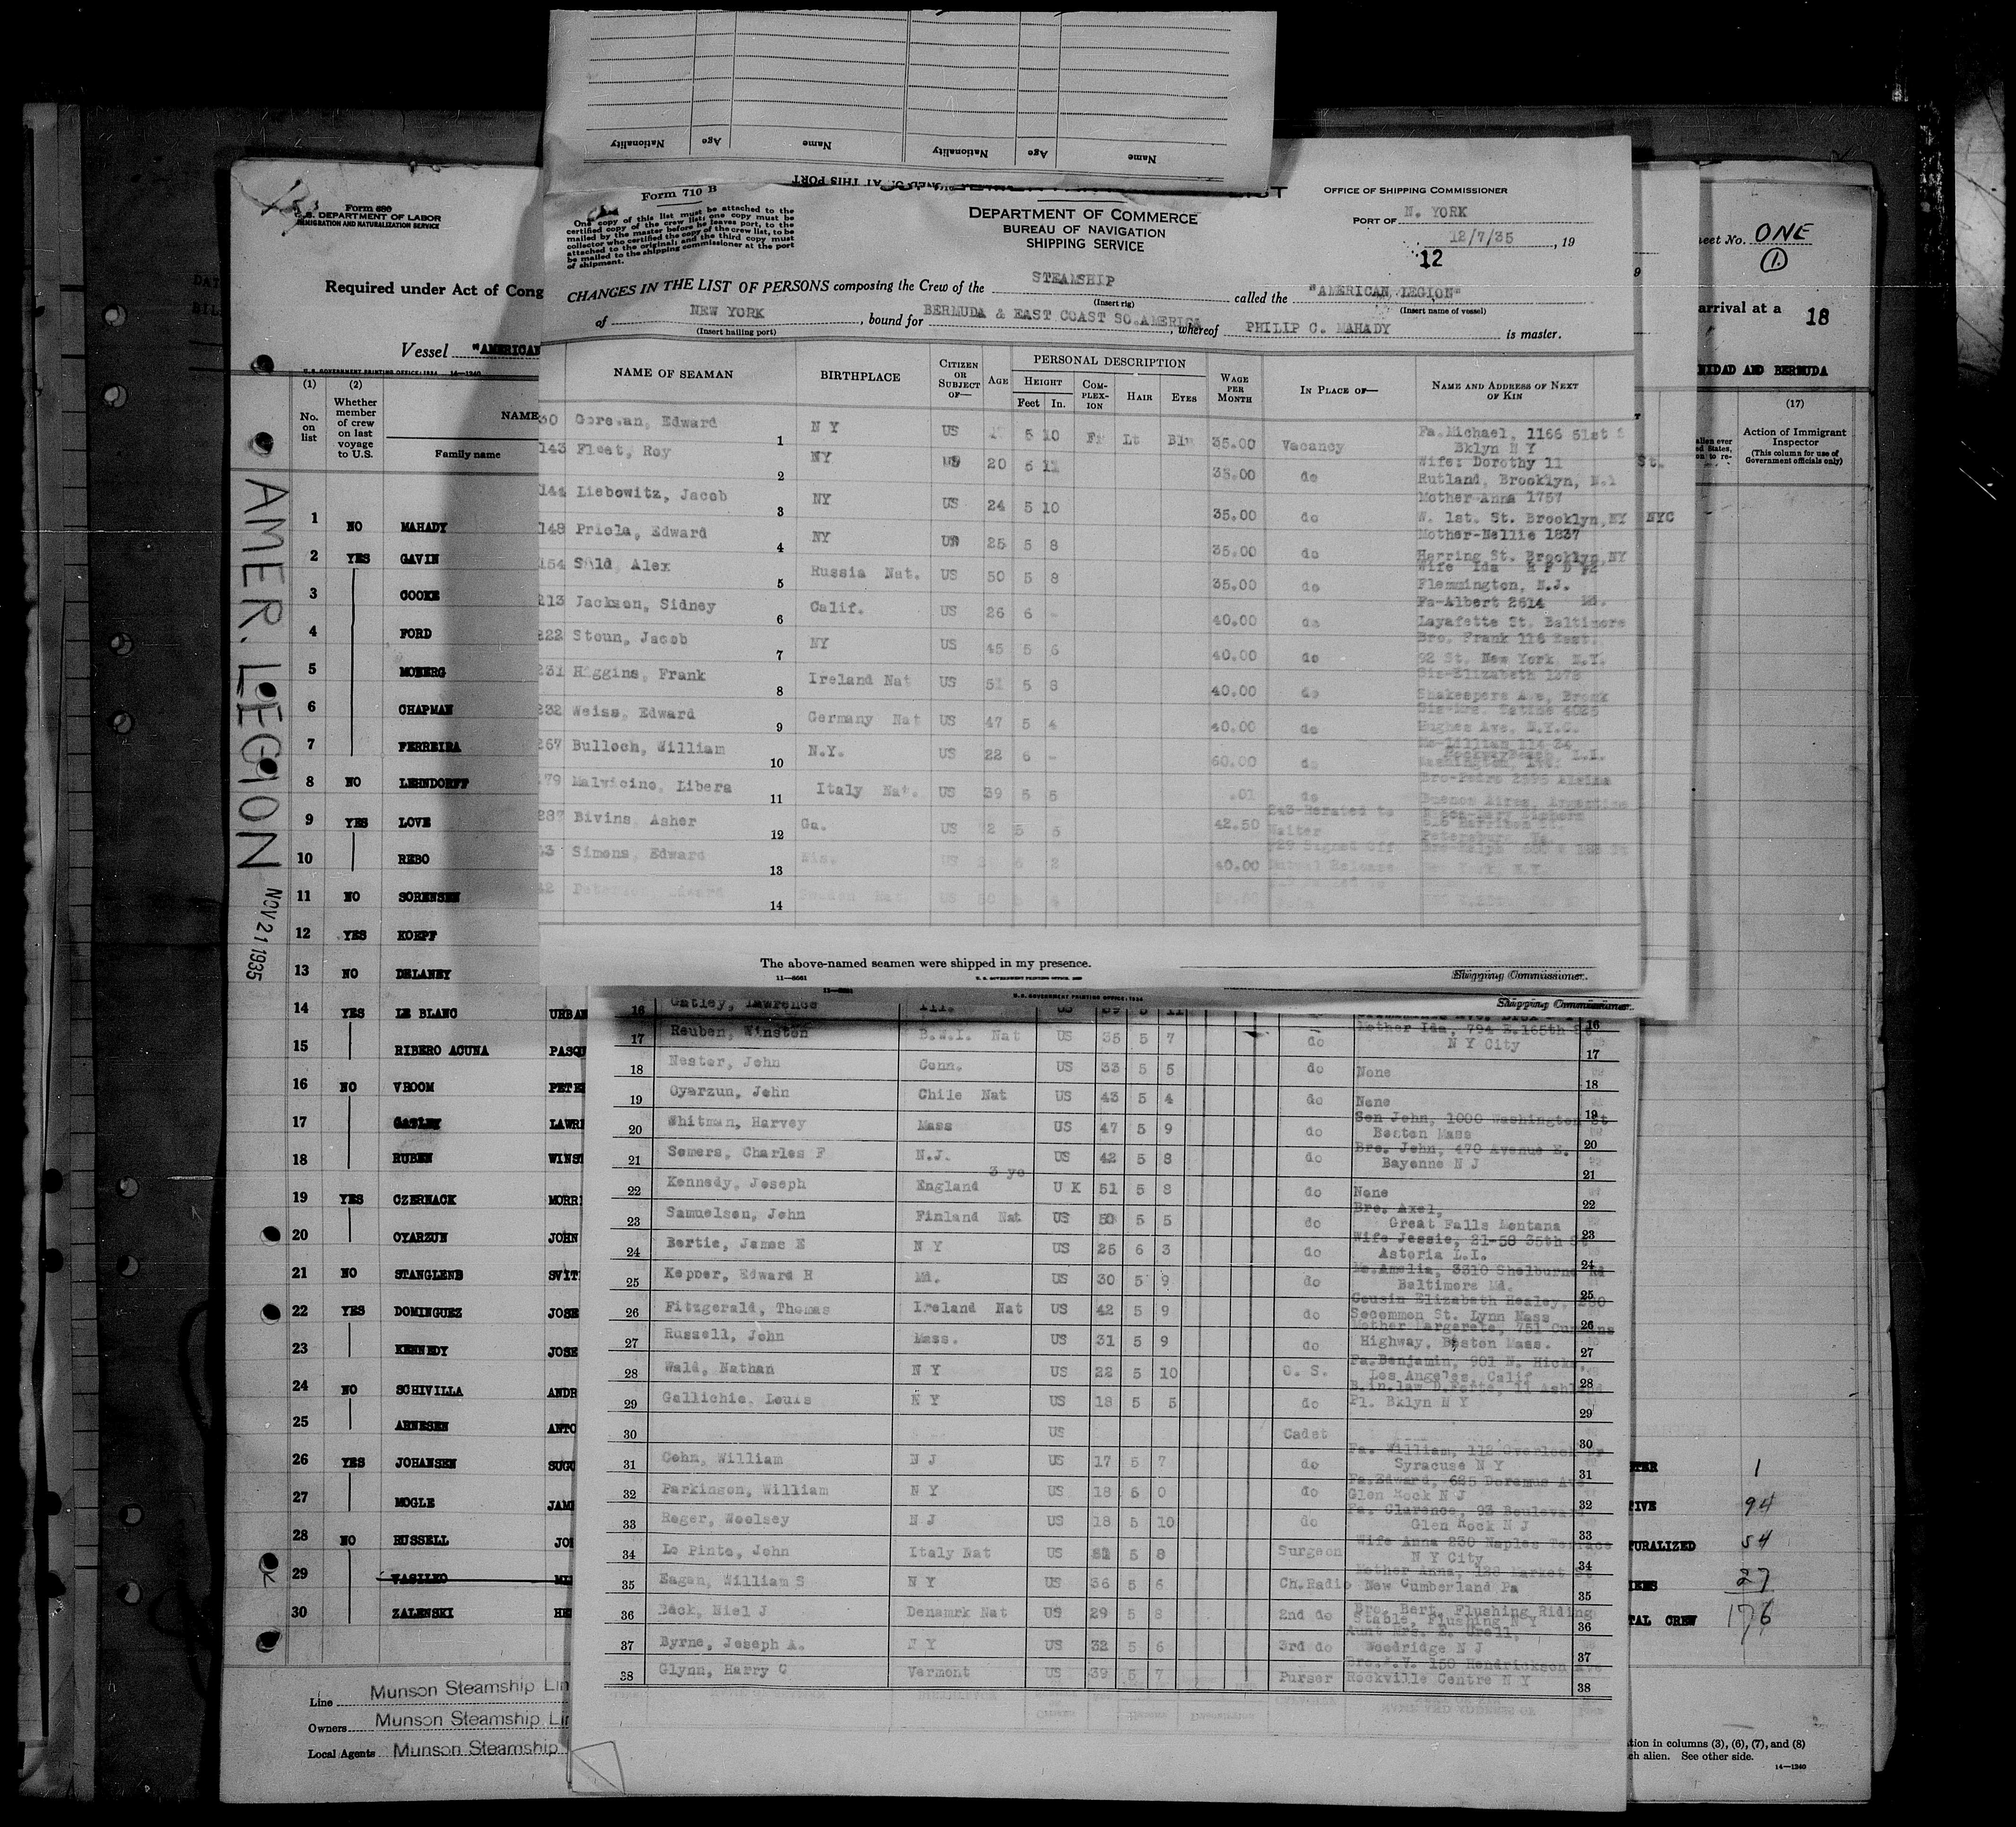 Nationality Age Name Nationality Age Name
AT THIS PORT
Form 680
U.S. DEPARTMENT OF LABOR
IMMIGRATION AND NATURALIZATION SERVICE
Required under Act of Cong
Vessel "AMERICAN
U. S. GOVERNMENT PRINTING OFFICE: 1934 14—1240
(1) (2)
No. on list
Whether member of crew on last voyage to U.S.
NAME
Family name
AMER. LEGION
NOV 21 1935
1 NO MAHADY
2 YES GAVIN
3 COOKE
4 FORD
5 MOBERG
6 CHAPMAN
7 FERREIRA
8 NO LEHNDORFF
9 YES LOVE
10 REBO
11 NO SORENSEN
12 YES KOEPF
13 NO DELANEY
14 YES LE BLANC URBAN
15 RIBERO ACUNA PASQU
16 NO VROOM PETE
17 GATLEY LAWR
18 RUBEN WINS
19 YES CZERNACK MORR
20 OYARZUN JOHN
21 NO STANGLENB SVIT
22 YES DOMINGUEZ JOSE
23 KENNEDY JOSE
24 NO SCHIVILLA ANDR
25 ARNESEN ANTO
26 YES JOHANSEN SUGU
27 MOGLE JAM
28 NO RUSSELL JO
29 VASILKO MI
30 ZALENSKI HE
Line Munson Steamship Lin
Owners Munson Steamship Li
Local Agents Munson Steamship
Form 710 B
One copy of this list must be attached to the
certified copy of the crew list; one copy must be
mailed by the master before he leaves port, to the
collector who certified the copy of the crew list, to be
attached to the original; and the third copy must
be mailed to the shipping commissioner at the port
of shipment.
DEPARTMENT OF COMMERCE
BUREAU OF NAVIGATION
SHIPPING SERVICE
OFFICE OF SHIPPING COMMISSIONER
PORT OF N. YORK
12/7/35, 19
12
CHANGES IN THE LIST OF PERSONS composing the Crew of the STEAMSHIP called the "AMERICAN LEGION"
(Insert rig) (Insert name of vessel)
of NEW YORK, bound for BERMUDA & EAST COAST SO.AMERICA, whereof PHILIP C. MAHADY is master.
(Insert hailing port)
NAME OF SEAMAN BIRTHPLACE CITIZEN OR SUBJECT OF— AGE PERSONAL DESCRIPTION WAGE PER MONTH IN PLACE OF— NAME AND ADDRESS OF NEXT OF KIN
HEIGHT COMPLEXION HAIR EYES
Feet In.
30 Gorevan, Edward 1 N Y US 5 10 Lt 35.00 Vacancy Fa.Michael, 1166 51st S
Bklyn N Y
143 Fleet, Roy 2 NY US 20 5 11 35.00 do Wife: Dorothy 11 St.
Rutland, Brooklyn, N.Y
144 Liebowitz, Jacob 3 NY US 24 5 10 35.00 do Mother-Anna 1757
W. 1st. St. Brooklyn,NY NYC
148 Priola, Edward 4 NY US 25 5 8 35.00 do Mother-Nellie 1837
Herring St. Brooklyn,NY
154 Alex 5 Russia Nat. US 50 5 8 35.00 do Wife Ida R F D #2
Flemmington, N.J.
213 Jackson, Sidney 6 Calif. US 26 6 - 40.00 do Fa-Albert 2614
Layafette St. Baltimore
222 Stoun, Jacob 7 NY US 45 5 6 40.00 do Bro. Frank 116 East
92 St. New York N.Y.
231 Higgins, Frank 8 Ireland Nat US 51 5 8 40.00 do Sis-Elizabeth 1378
Shakespere Ave, Bronx
232 Weiss, Edward 9 Germany Nat US 47 5 4 40.00 do 4025
Hughes Ave. N.Y.C.
267 Bulloch, William 10 N.Y. US 22 6 - 60.00 do
L.I.
279 Malvicino, Libera 11 Italy Nat. US 39 5 5 .01 do Bro-Pedro
Buenos Aires, Argentina
287 Bivins, Asher 12 Ga. US 5 6 42.50 243-Rerated to
Waiter
Simons, Edward 13 US 2 40.00 Signed Off
Mutual Release
14 Nat. US
The above-named seamen were shipped in my presence.
11—5661 U. S. GOVERNMENT PRINTING OFFICE
Shipping Commissioner.
U. S. GOVERNMENT PRINTING OFFICE: 1934
Shipping Commissioner.
16 Gatley, Lawrence Ill. US 39 5 11 16
17 Reuben, Winston B.W.I. Nat US 35 5 7 do Mother Ida, 794 E.165th St
N Y City 17
18 Nester, John Conn. US 33 5 5 do None 18
19 Oyarzun, John Chile Nat US 43 5 4 do None 19
20 Whitman, Harvey Mass US 47 5 9 do Son John, 1000 Washington St
Boston Mass 20
21 Somers, Charles F N.J. US 42 5 8 do Bro. John, 470 Avenue E.
Bayonne N J 21
22 Kennedy, Joseph England 3 yo U K 51 5 8 do None 22
23 Samuelson, John Finland Nat US 50 5 5 do Bro. Axel,
Great Falls Montana 23
24 Bertie, James E N Y US 25 6 3 do Wife Jessie, 21-58 35th St
Astoria L.I. 24
25 Kepper, Edward H Md. US 30 5 9 do Mo.Amelia, 3310 Shelburne Rd
Baltimore Md. 25
26 Fitzgerald, Thomas Ireland Nat US 42 5 9 do Cousin Elizabeth Healey,
St. Lynn Mass 26
27 Russell, John Mass. US 31 5 9 do Mother Margerete, 751 Cummins
Highway, Boston Mass. 27
28 Wald, Nathan N Y US 22 5 10 O. S. Fa.Benjamin, 901 N. Hicks,
Los Angeles, Calif 28
29 Gallichio, Louis N Y US 18 5 5 do
Pl. Bklyn N Y 29
30 US Cadet 30
31 Cohn, William N J US 17 5 7 do Fa. William, 112 Overlook Dr
Syracuse N Y 31
32 Parkinson, William N Y US 18 6 0 do Fa.Edward, 685 Doremus Ave
Glen Rock N J 32
33 Roger, Woolsey N J US 18 5 10 do Fa. Clarence, 93 Boulevard
Glen Rock N J 33
34 Lo Pinto, John Italy Nat US 5 8 Surgeon Wife Anna 230 Naples Terrace
N Y City 34
35 Eagan, William S N Y US 36 5 6 Ch.Radio Mother Anna, 128 Market St
New Cumberland Pa 35
36 Back, Niel J Denamrk Nat US 29 5 8 2nd do Bro. Bert, Flushing Riding
Stable, Flushing N Y 36
37 Byrne, Joseph A. N Y US 32 5 6 3rd do Aunt Mrs. E.
Woodridge N J 37
38 Glynn, Harry C Vermont US 39 5 7 Purser 150 Hendrickson Ave
Rockville Centre N Y 38
eet No. ONE
1.
arrival at a 18
NIDAD AND BERMUDA
(17)
Action of Immigrant Inspector
(This column for use of Government officials only)
TER 1
TIVE 94
TURALIZED 54
IENS 27
TAL CREW 176
tion in columns (3), (6), (7), and (8)
ch alien. See other side.
14—1240